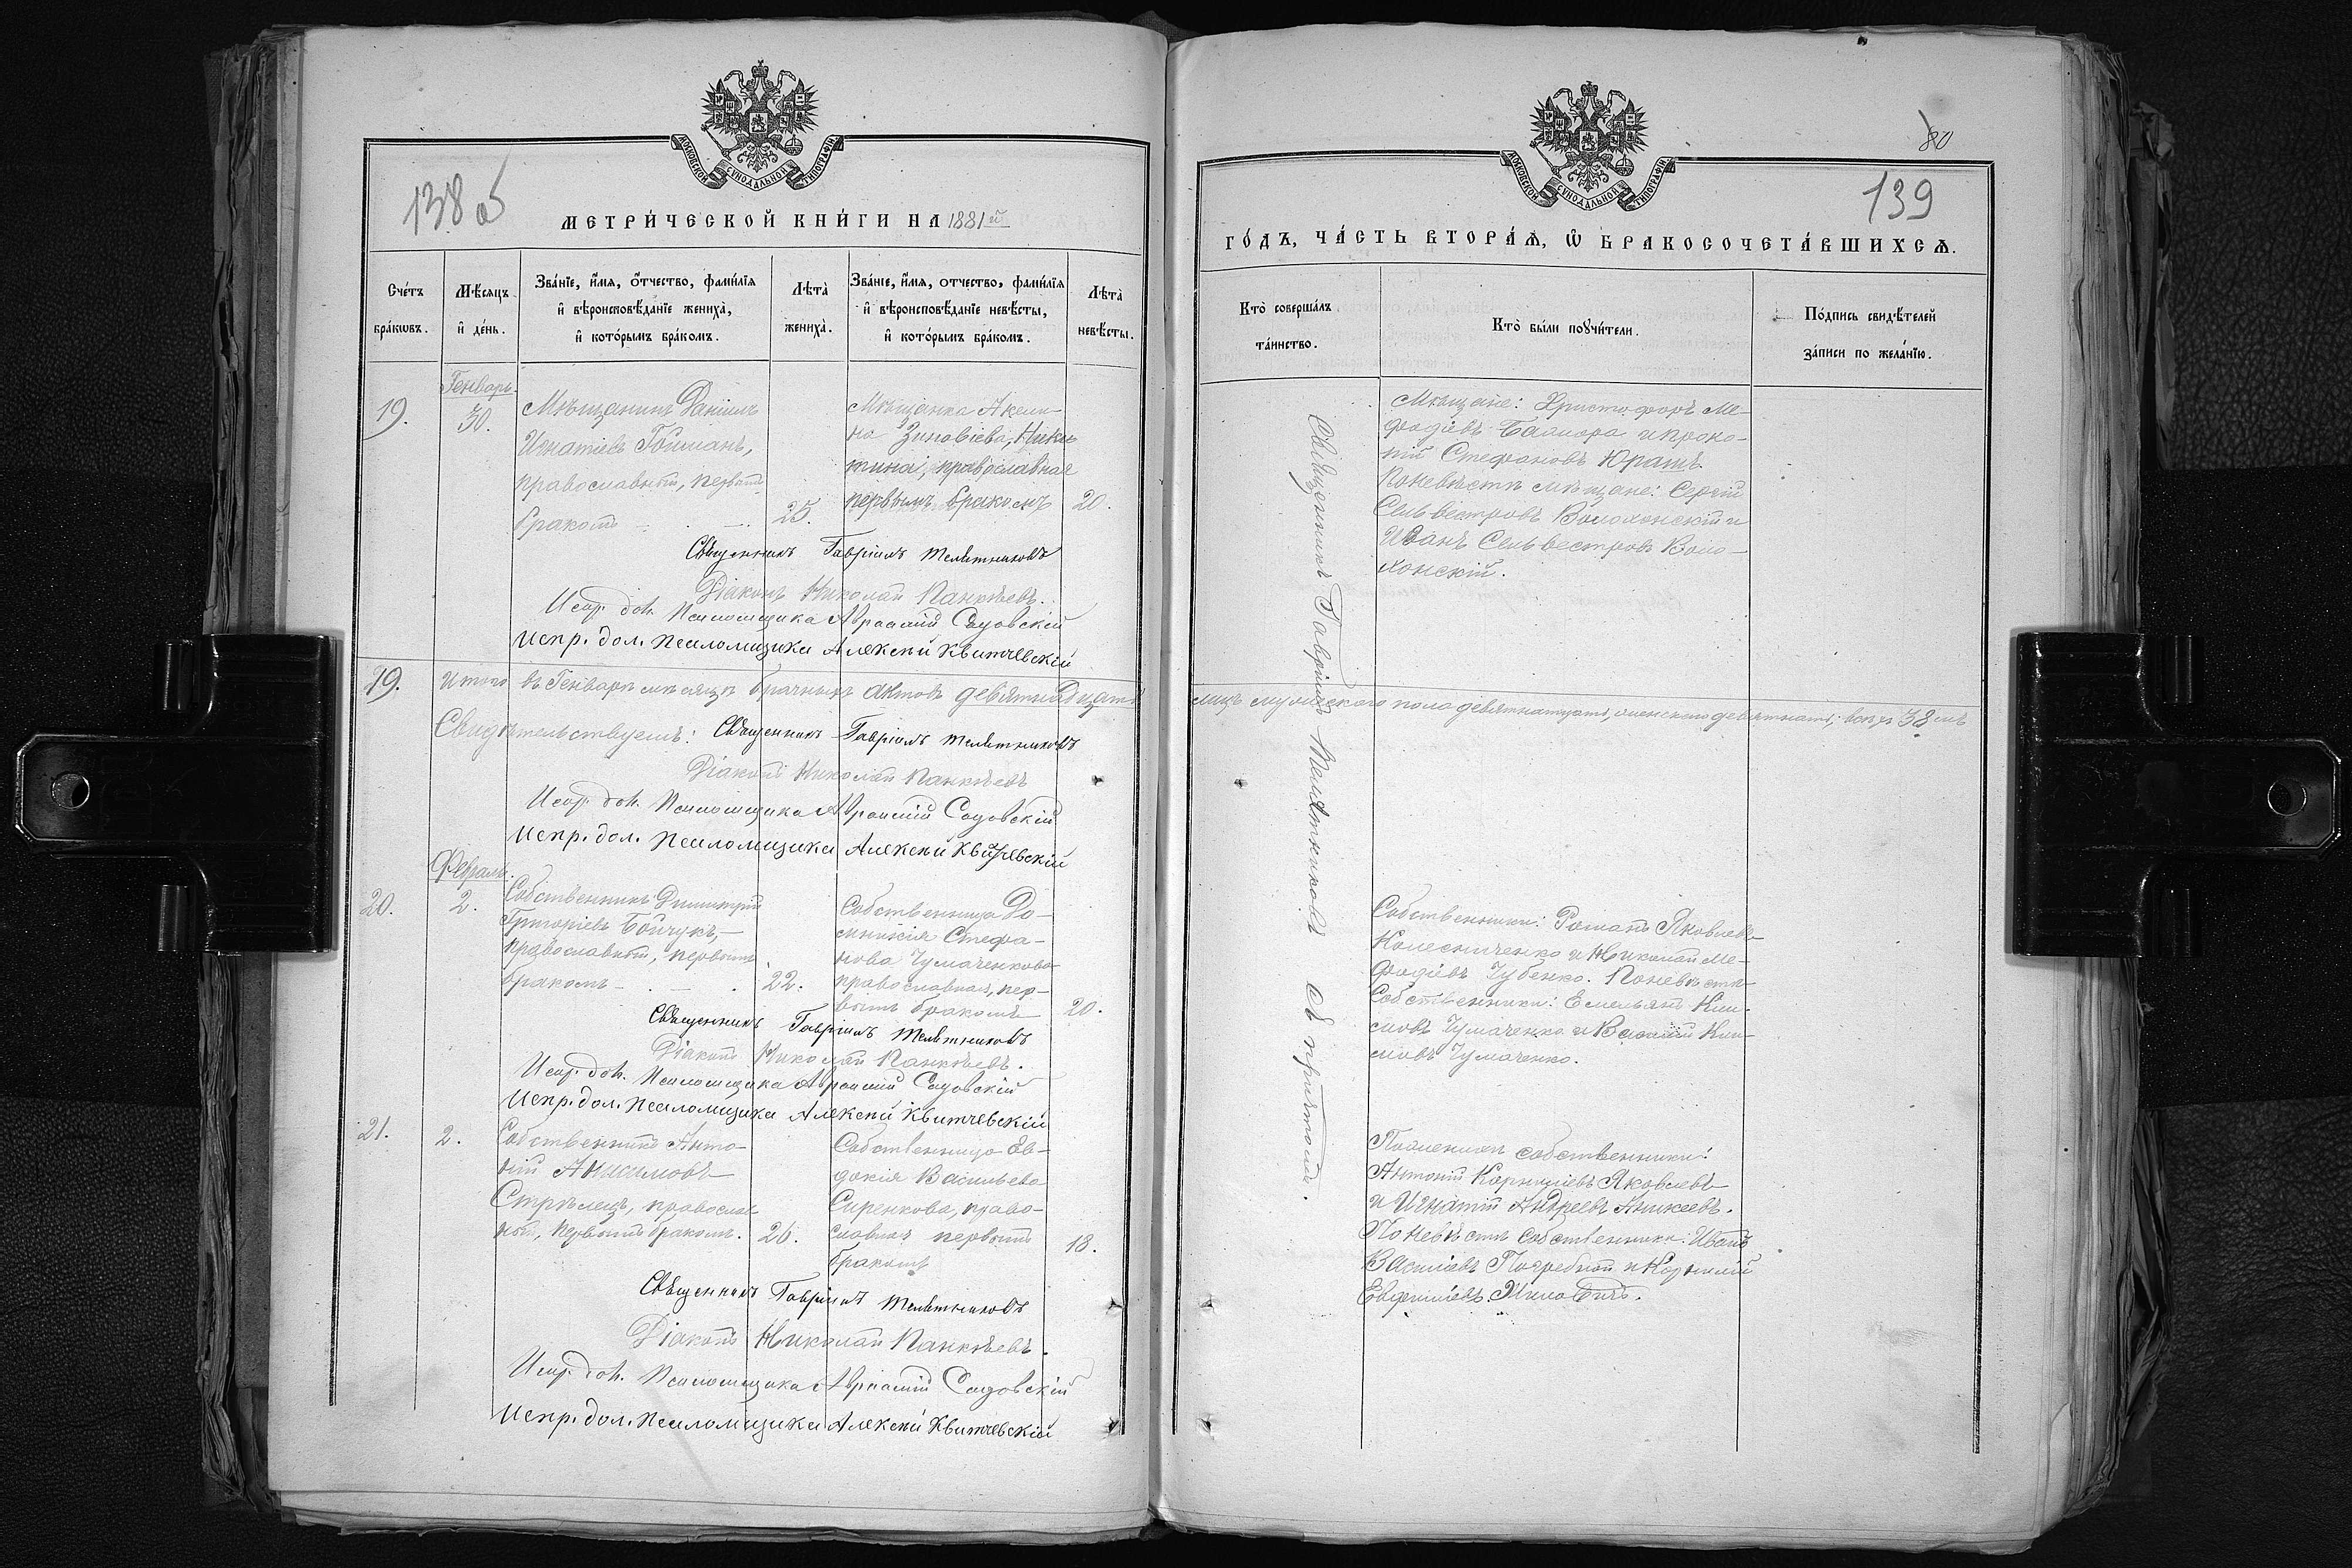 МОСКОВСКОЙ СѴНОДАЛЬНОЙ ТИПОГРАФІИ
138 об
МЕТРИ́ЧЕСКОЙ КНИ́ГИ НА 1881й
Сче́тъ бра́кωвъ.
Мѣ́сяцъ и҆ де́нь.
Зва́нїе, и҆́мя, ѻ҆́тчество, фами́лїя
и҆ вѣроисповѣ́данїе жениха̀,
и҆ кото́рымъ бра́комъ.
Лѣта̀ жениха̀.
Зва́нїе, и҆́мя, отчество, фами́лїя
и҆ вѣроисповѣ́данїе невѣ́сты,
и҆ кото́рымъ бра́комъ.
Лѣта̀ невѣ́сты.
Генварь
19.
30.
Мѣщанинъ Даніилъ
Игнатіевъ Гойманъ,
православный, первымъ
бракомъ
25.
Мѣщанка Акели-
на Зиновіева, Ники-
тина, православная
первымъ бракомъ
20.
Священникъ Гавріилъ Мелѣтниковъ
Діаконъ Николай Панкѣевъ.
Испр. дол. Псаломщика Авраамій Садовскій
Испр. дол. Псаломщика Алексѣй Квитчевскій
19.
Итого въ Генварѣ мѣсяцѣ брачныхъ актовъ девятнадцать
Свидѣтельствуемъ: Священникъ Гавріилъ Мелѣтниковъ
Діаконъ Николай Панкѣевъ
Испр. дол. Псаломщика Авраамій Садовскій
Испр. дол. Псаломщика Алексѣй Квитчевскій
Февраль.
20.
2.
Собственникъ Димитрій
Григоріевъ Бойчукъ,
православный, первымъ
бракомъ
22.
Собственница До-
мникія Стефа-
нова Чумаченкова
православная, пер-
вымъ бракомъ
20.
Священникъ Гавріилъ Мелѣтниковъ
Діаконъ Николай Панкѣевъ.
Испр. дол. Псаломщика Авраамій Садовскій
Испр. дол. Псаломщика Алексѣй Квитчевскій
21.
2.
Собственникъ Анто-
ній Анисимовъ
Стрѣлецъ, православ
ный, первымъ бракомъ.
26.
Собственница Ев-
докія Васильева
Сиренкова, право-
славная первымъ
бракомъ
18.
Священникъ Гавріилъ Мелѣтниковъ
Діаконъ Николай Панкѣевъ.
Испр. дол. Псаломщика Авраамій Садовскій
Испр. дол. Псаломщика Алексѣй Квитчевскій
МОСКОВСКОЙ СѴНОДАЛЬНОЙ ТИПОГРАФІИ
80
139
ГО́ДЪ, ЧА́СТЬ ВТОРА́Я, Ѽ БРАКОСОЧЕТА́ВШИХСЯ.
Кто̀ соверша́лъ
та́инство.
Кто̀ бы́ли поꙋчи́тели.
По́дпись свидѣ́телей
за́писи по жела́нїю.
Священникъ Гавріилъ Мелѣтниковъ съ причтомъ.
Мѣщане: Христофоръ Ме-
фодіевъ Баляора и Проко-
пій Стефановъ Юрашъ.
По невѣстѣ мѣщане: Сергій
Сельвестровъ Волохонскій и
Иванъ Сельвестровъ Воло-
хонскій.
лицъ мужескаго пола девятнатцать, женскаго девятнать, всѣхъ 38мь
Собственники: Романъ Яковлевъ
Колесниченко и Николай Ме-
фодіевъ Чубенко. По невѣстѣ
Собственники: Емельянъ Кли-
мовъ Чумаченко и Василій Кли-
мовъ Чумаченко.
По женихѣ собственники:
Антоній Корниліевъ Яковлевъ
и Игнатій Андреевъ Аникеевъ.
По невѣстѣ собственники: Иванъ
Василіевъ Погребной и Корнилій
Евфиміевъ